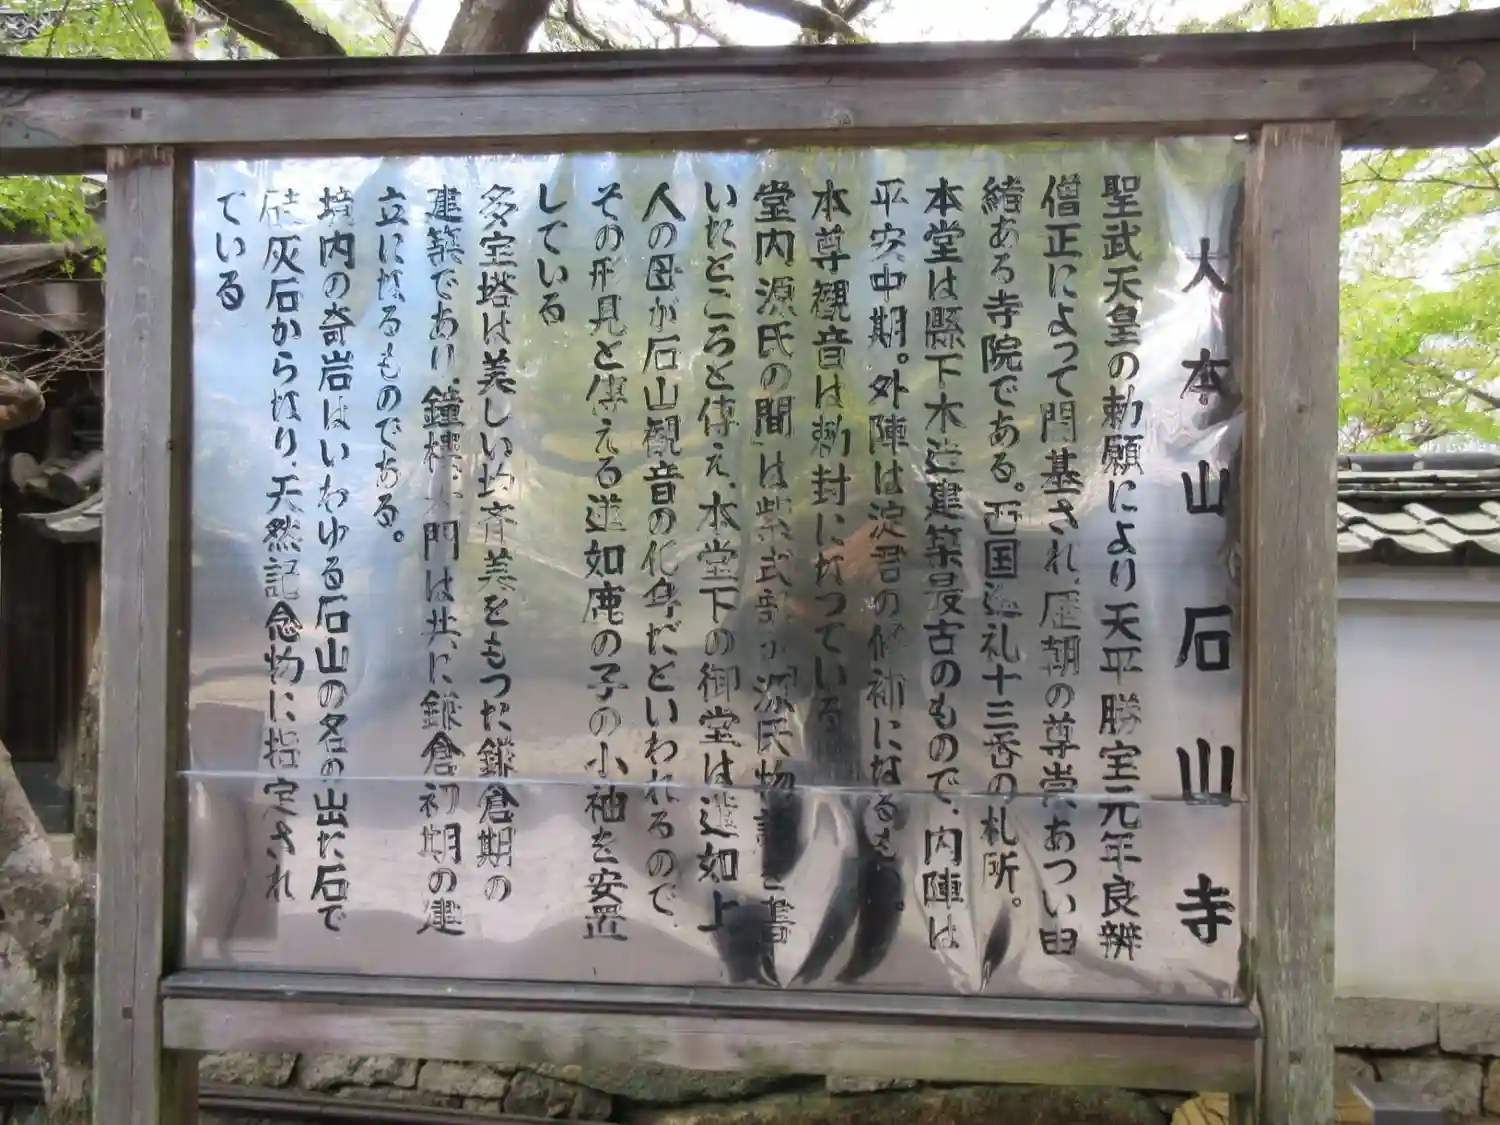 大本山石山寺
聖武天皇の勅願により天平勝宝元年良辨
僧正によって開基され、歴朝の尊崇あつい由
緒ある寺院である。西国巡礼十三番の札所。
本堂は縣下木造建築最古のもので、内陣は
平安中期。外陣は淀君の修補になるもの。
本尊観音は勅封になっている
堂内「源氏の間」は紫式部が『源氏物語』を書
いたところと傳え、本堂下の御堂は蓮如上
人の母が石山観音の化身だといわれるので、
その形見と傳える蓮如鹿の子の小袖を安置
している
多宝塔は美しい均斉美をもつた鎌倉期の
建築であり、鐘楼、大門は共に鎌倉初期の建
立になるものである。
境内の奇岩はいわゆる石山の名の出た石で
硅灰石からなり、天然記念物に指定され
ている